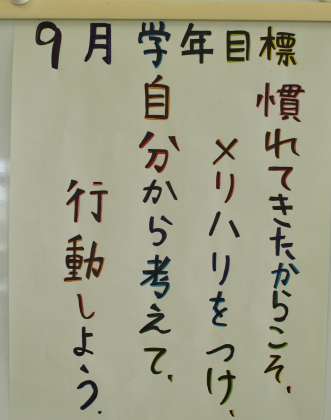 9月学年目標
慣れてきたからこそ、
メリハリをつけ、
自分から考えて、
行動しよう。